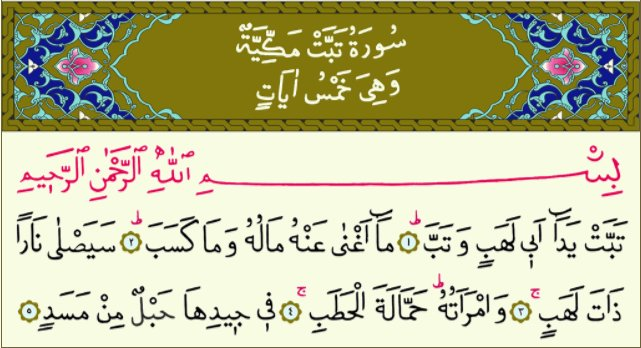 سُورَةُ تَبَّتْ مَكِّيَّةٌ
وَهِيَ خَمْسُ اٰيَاتٍ
بِسْــــــــــــــــــمِ اللّٰهِ الرَّحْمٰنِ الرَّحِيمِ
تَبَّتْ يَدَٓا اَبٖي لَهَبٍ وَتَبَّ ط ﴿١﴾ مَٓا اَغْنٰى عَنْهُ مَالُهُ وَمَا كَسَبَ ط ﴿٢﴾ سَيَصْلٰى نَارًا
ذَاتَ لَهَبٍ ج ﴿٣﴾ وَامْرَاَتُهُ ط حَمَّالَةَ الْحَطَبِ ج ﴿٤﴾ فٖي جٖيدِهَا حَبْلٌ مِنْ مَسَدٍ ﴿٥﴾